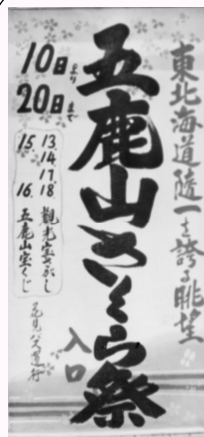 東北海道随一を誇る眺望
五鹿山さくら祭
入口
10日より
20日まで
13. 14. 17. 18 観光宝さがし
15. 16. 五鹿山宝くじ